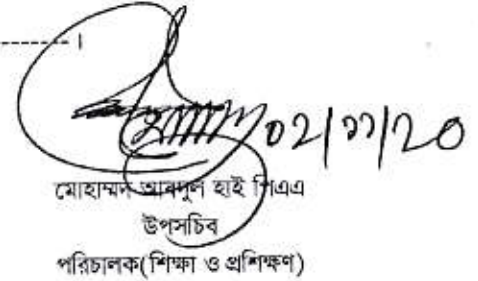 ---------- ।
০২/১১/২০
মোহাম্মদ আবদুল হাই পিএএ
উপসচিব
পরিচালক(শিক্ষা ও প্রশিক্ষণ)